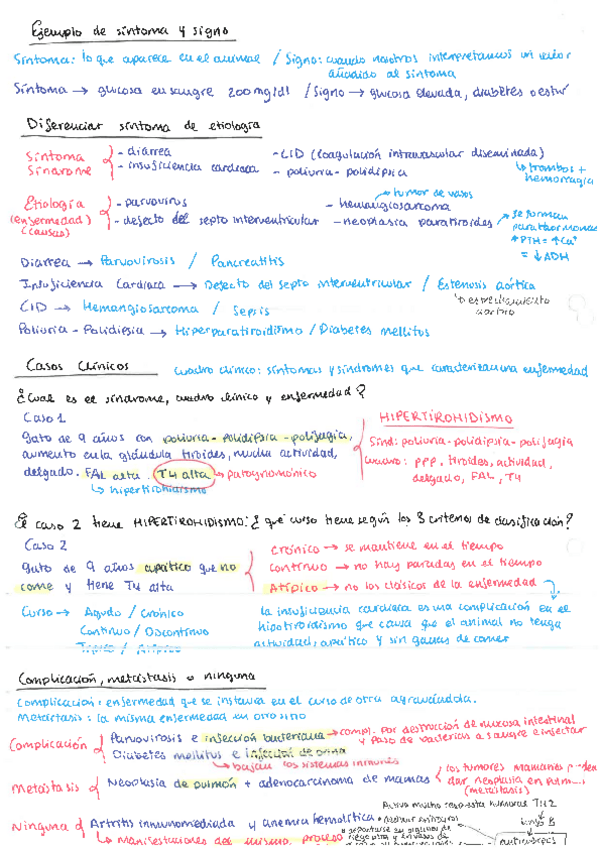 Ejemplo de síntoma y signo
Síntoma: lo que aparece en el animal / Signo: cuando nosotros interpretamos un valor
añadido al síntoma
Síntoma → glucosa en sangre 200 mg/dl / Signo → glucosa elevada, diabetes o estrés
Diferenciar síntoma de etiología
Síntoma
Síndrome
- diarrea
- insuficiencia cardiaca
- CID (coagulación intravascular diseminada)
- poliuria - polidipsia
↳ trombos +
hemorragia
Etiología
(enfermedad)
(causas)
- parvovirus
- defecto del septo interventricular
tumor de vasos
- hemangiosarcoma
- neoplasia paratiroides
se forman
parathormona
↑ PTH = ↑ Ca²⁺
= ↓ ADH
Diarrea → Parvovirosis / Pancreatitis
Insuficiencia Cardiaca → Defecto del septo interventricular / Estenosis aórtica
↳ estrechamiento
aórtico
CID → Hemangiosarcoma / Sepsis
Poliuria - Polidipsia → Hiperparatiroidismo / Diabetes mellitus
Casos Clínicos
cuadro clínico: síntomas y síndromes que caracterizan una enfermedad
¿Cual es el síndrome, cuadro clínico y enfermedad?
Caso 1
Gato de 9 años con poliuria - polidipsia - polifagia,
aumento en la glándula tiroides, mucha actividad,
delgado. FAL alta. T4 alta
↳ patognomónico
↳ hipertirohidismo
HIPERTIROHIDISMO
Sind: poliuria - polidipsia - polifagia
Cuadro: PPP, tiroides, actividad,
delgado, FAL, T4
El caso 2 tiene HIPERTIROHIDISMO: ¿qué curso tiene según los 3 criterios de clasificación?
Caso 2
Gato de 9 años apático que no
come y tiene T4 alta
crónico → se mantiene en el tiempo
continuo → no hay paradas en el tiempo
Atípico → no los clásicos de la enfermedad
Curso → Agudo / Crónico
Continuo / Discontinuo
Típico / Atípico
la insuficiencia cardiaca es una complicación en el
hipotiroidismo que causa que el animal no tenga
actividad, apático y sin ganas de comer
Complicación, metástasis o ninguna
Complicación: enfermedad que se instaura en el curso de otra agravándola.
Metástasis: la misma enfermedad en otro sitio
Complicación
Parvovirosis e infección bacteriana
→ compl. por destrucción de mucosa intestinal
y paso de bacterias a sangre e infectar
Diabetes mellitus e infección de orina
↳ bajan los sistemas inmunes
Metástasis
Neoplasia de pulmón + adenocarcinoma de mamas
los tumores mamarios pueden
dar neoplasia en pulm...
(metástasis)
Ninguna
Artritis inmunomediada y anemia hemolítica
↳ Manifestaciones del mismo proceso
TH2